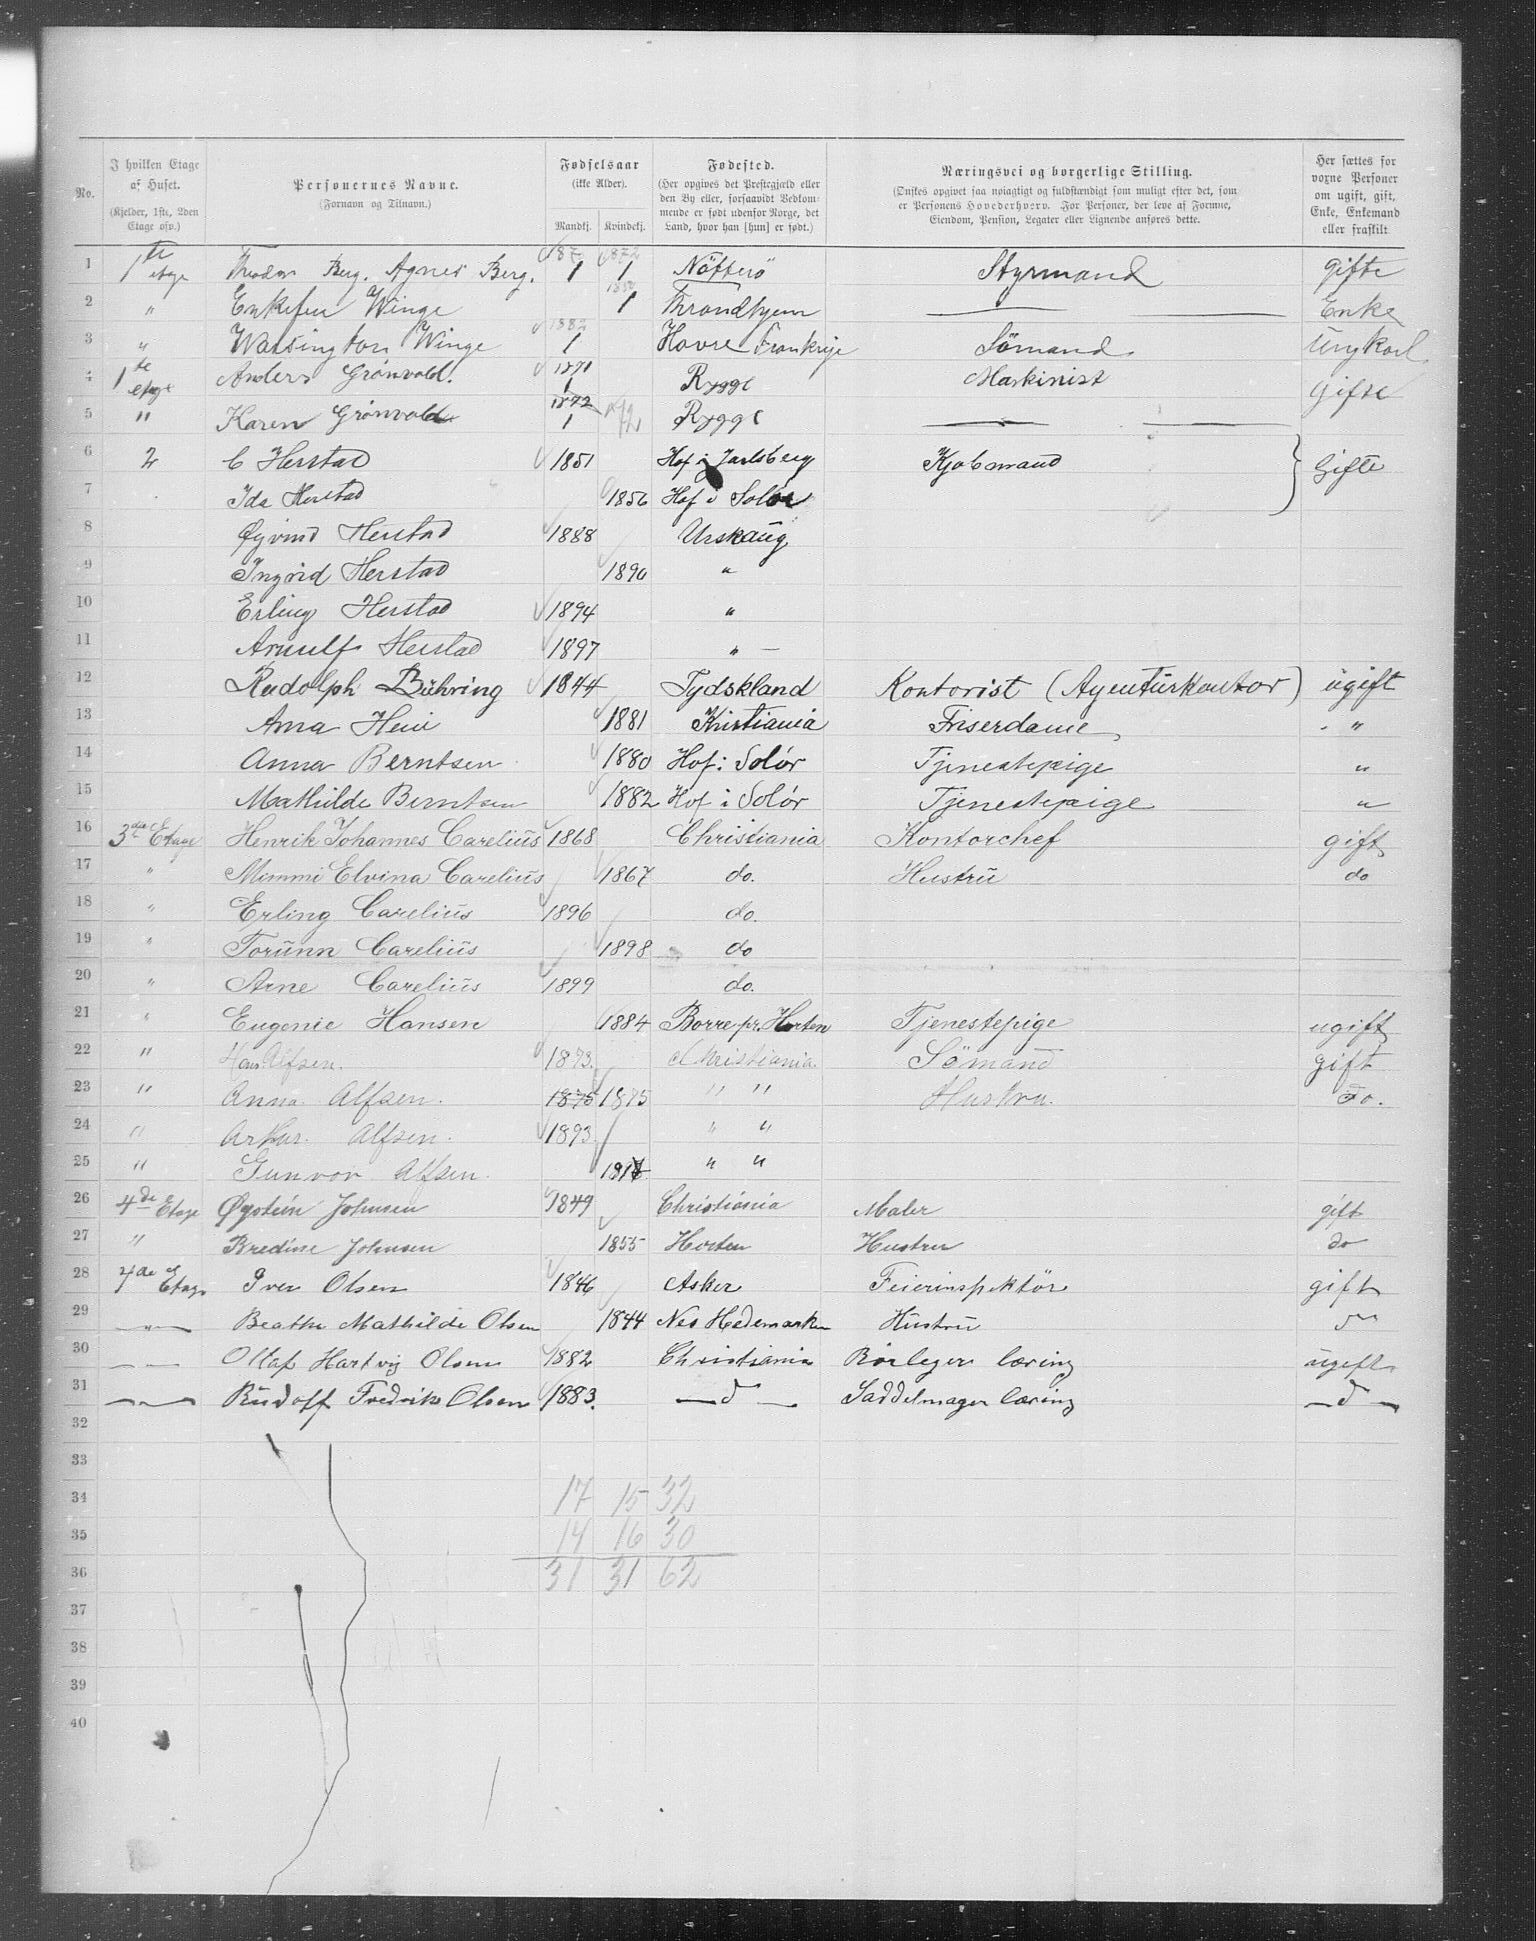 No.
I hvilken Etage af Huset.
(Kjelder, 1ste, 2den Etage osv.)
Personernes Navne.
(Fornavn og Tilnavn.)
Fødselsaar
(ikke Alder).
Mandkj. Kvindekj.
Fødested.
(Her opgives det Prestegjæld eller den By eller, forsaavidt Vedkommende er født udenfor Norge, det Land, hvor han [hun] er født.)
Næringsvei og borgerlige Stilling.
(Ønskes opgivet saa nøiagtigt og fuldstændigt som muligt efter det, som er Personens Hovederhverv. For Personer, der leve af Formue, Eiendom, Pension, Legater eller Lignende anføres dette.
Her sættes for voxne Personer om ugift, gift, Enke, Enkemand eller fraskilt
1 1ste etage Theodor Berg. Agnes Berg. 187 1 1872 1 Nötterö Styrmand gifte
2 " Enkefru Winge 1 Throndhjem — — Enke
3 " Wassington Winge 1882 1 Havre Frankrige Sömand Ungkarl
4 1te etage Anders Grönvold. 1871 1 Rygge Maskinist gifte
5 " Karen Grönvold 1872 1 72 Rygge — —
6 2 C Herstad 1851 Hof i Jarlsberg Kjøbmand } Gifte
7 Ida Herstad 1856 Hof i Solør
8 Øyvind Herstad 1888 Urskaug
9 Ingrid Herstad 1890 "
10 Erling Herstad 1894 "
11 Arnulf Herstad 1897 " —
12 Rudolph Bühring 1844 Tydskland Kontorist (Agenturkontor) ugift
13 Anna 1881 Kristiania Friserdame "
14 Anna Berntsen 1880 Hof i Solör Tjenestepige "
15 Mathilde Berntsen 1882 Hof i Solör Tjenestepige "
16 3die Etage Henrik Johannes Carelius 1868 Christiania Kontorchef gift
17 " Mimmi Elvina Carelius 1867 do. Hustru do
18 " Erling Carelius 1896 do.
19 " Torunn Carelius 1898 do
20 " Arne Carelius 1899 do.
21 " Eugenie Hansen 1884 Borre pr. Horten Tjenestepige ugift
22 " Hans Alfsen. 1873. Christiania. Sömand gift
23 " Anna Alfsen. 1875 1875 " " Hustru. do.
24 " Arthur. Alfsen. 1893. " "
25 " Gunvor Alfsen. " "
26 4de Etage Øystein Johnsen 1849 Christiania Maler gift
27 " Bredine Johnsen 1855 Horten Hustru do
28 4de Etage Iver Olsen 1846 Asker Feierinspektør gift
29 —"— Beathe Mathilde Olsen 1844 Nes Hedemarken Hustru do
30 — — Olaf Hartvig Olsen 1882 Christiania Rörlegger læring ugift
31 —"— Rudolf Fredrik Olsen 1883. —d— Saddelmager læring —d—
32
33
34 17 15 32
35 14 16 30
36 31 31 62
37
38
39
40